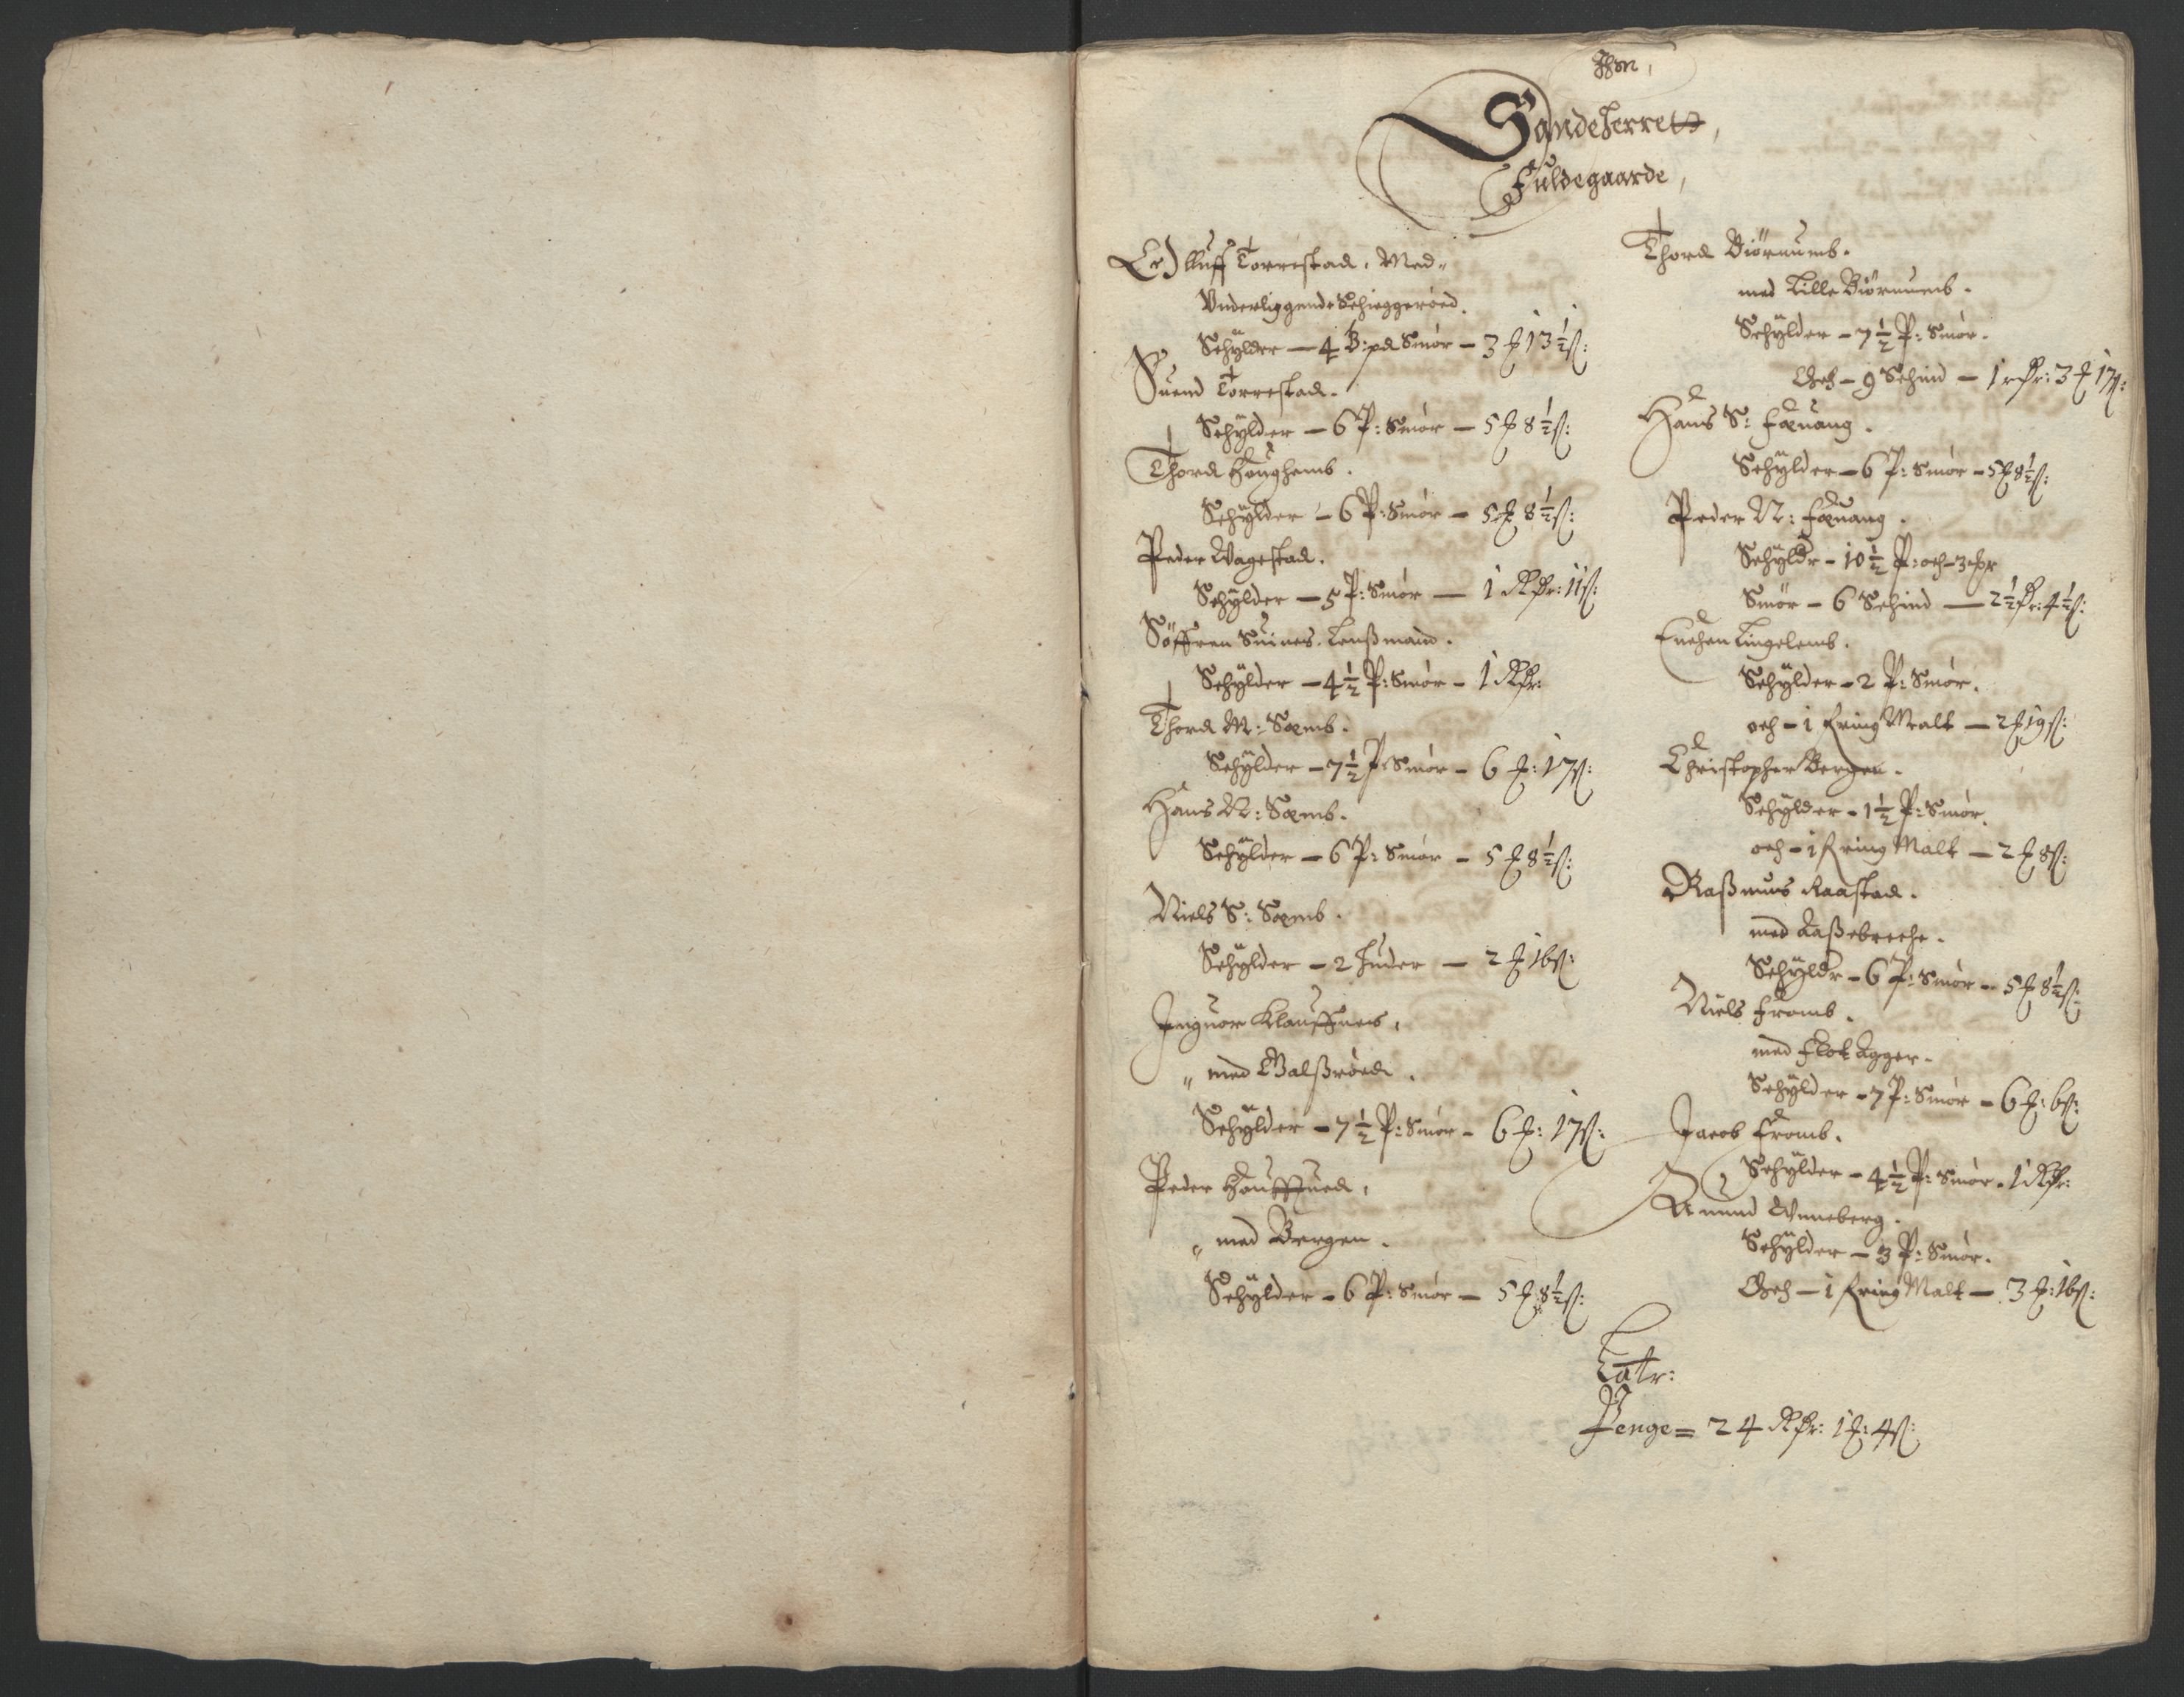 Sandeherrets
Fuldegaarde,
Torrestad, Med-
Underliggende
Schylder — 4 B:pd Smör — 3 ß 13½ s:
Suend Torrestad.
Schylder — 6 P: Smör — 5 ß 8½ s:
Thord Houghemb.
Schylder — 6 P: Smör — 5 ß 8½ s:
Peder Wagestad.
Schylder — 5 P: Smör — 1 Rdr: 11 s:
Söffren Suines. Lenßmand.
Schylder — 4½ P: Smör — 1 Rdr:
Thord M: Soemb.
Schylder — 7½ P: Smör — 6 ß: 17 s:
Hans N: Soemb.
Schylder — 6 P: Smör — 5 ß 8½ s:
Niels S: Soemb.
Schylder — 2 Huder — 2 ß 16 s:
Klauffnes,
„ med
Schylder — 7½ P: Smör — 6 ß: 17 s:
Peder Houffued,
„ med Bergen.
Schylder — 6 P: Smör — 5 ß 8½ s:
Thord Biörnumb.
med Lille Biörnumb.
Schylder — 7½ P: Smör.
Och — 9 Schind — 1 rdr: 3 ß 17 s:
Hans S: Foeuang.
Schylder — 6 P: Smör — 5 ß 8½ s:
Peder N: Foeuang.
Schyldr — 10½ P: och
Smör — 6 Schind — 2½ dr: 4½ s:
Lingelemb.
Schylder — 2 P: Smör.
och — 1 Malt — 2 ß 19 s:
Christopher Bergen.
Schylder — 1½ P: Smör.
och — 1 Malt — 2 ß 8 s:
Raßmus Raastad.
med
Schyldr — 6 P: Smör — 5 ß 8½ s:
Niels Fromb.
med
Schylder — 7 P: Smör — 6 ß: 6 s:
Jacob Fromb.
Schylder — 4½ P: Smör. 1 Rdr:
Amund Unneberg.
Schylder — 3 P: Smör.
Och — 1 Malt — 3 ß: 16 s:
Latr:
Penge = 24 Rdr: 1 ß: 4 s: